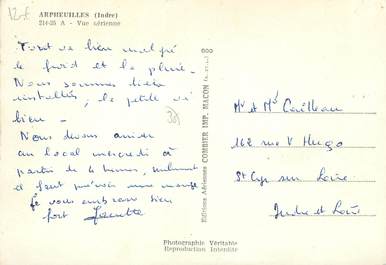 12-f
ARPHEUILLES (Indre)
214-35 A - Vue aérienne
Tout va bien malgré
le froid et la pluie -
Nous sommes bien
installés, la petite va
bien -
Nous devons arriver
au local mercredi à
partir de 4 heures, seulement
il faut prévoir une
Je vous embrasse bien
fort
38
Editions Aériennes COMBIER IMP. MACON
Mr et Mme Cailleau
162 rue V Hugo
St Cyr sur Loire
Indre et Loire
Photographie Véritable
Reproduction Interdite